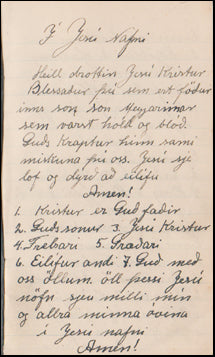 Í Jesú Nafni
Heill drottin Jesú Kristur
Blessadur þú sem ert födur
inns son son meyarinnar
sem varst hold og blód.
Guds Kraptur hinn sami
miskuna þú oss. Jesú sje
lof og dyrd ad eilífu
Amen!
1. Kristur er Gud fadir
2. Guds sonur 3. Jesú Kristur
4. 5. Grædari
6. Eilífur andi 7. Gud med
oss öllum. öll þessi Jesú
nöfn sjeu milli mín
og allra minna óvina
í Jesú nafni
Amen!